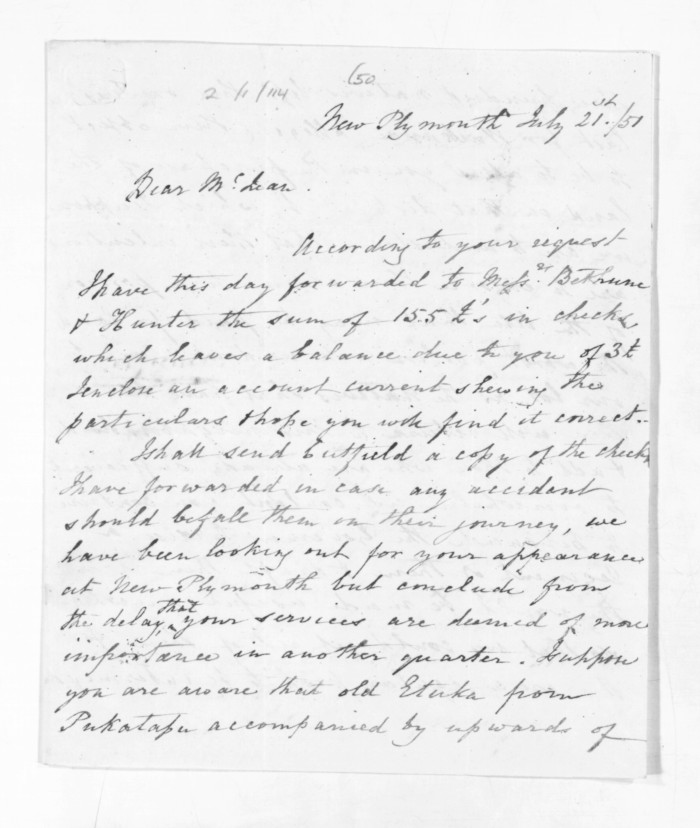 (50
2/1/114
New Plymouth July 21st./51
Dear McLean.
According to your request
I have this day forwarded to Messrs. Bethune
& Hunter the sum of 155 £'s in checks
which leaves a balance due to you of 3£
I enclose an account current shewing the
particulars & hope you will find it correct.
I shall send Cutfield a copy of the checks
I have forwarded in case any accidant
should befall them on their journey, we
have been looking out for your appearance
at New Plymouth but conclude from
the delay, that your services are deemed of more
importance in another quarter. I suppose
you are aware that old Etuka from
Pukatapu accompanied by upwards of